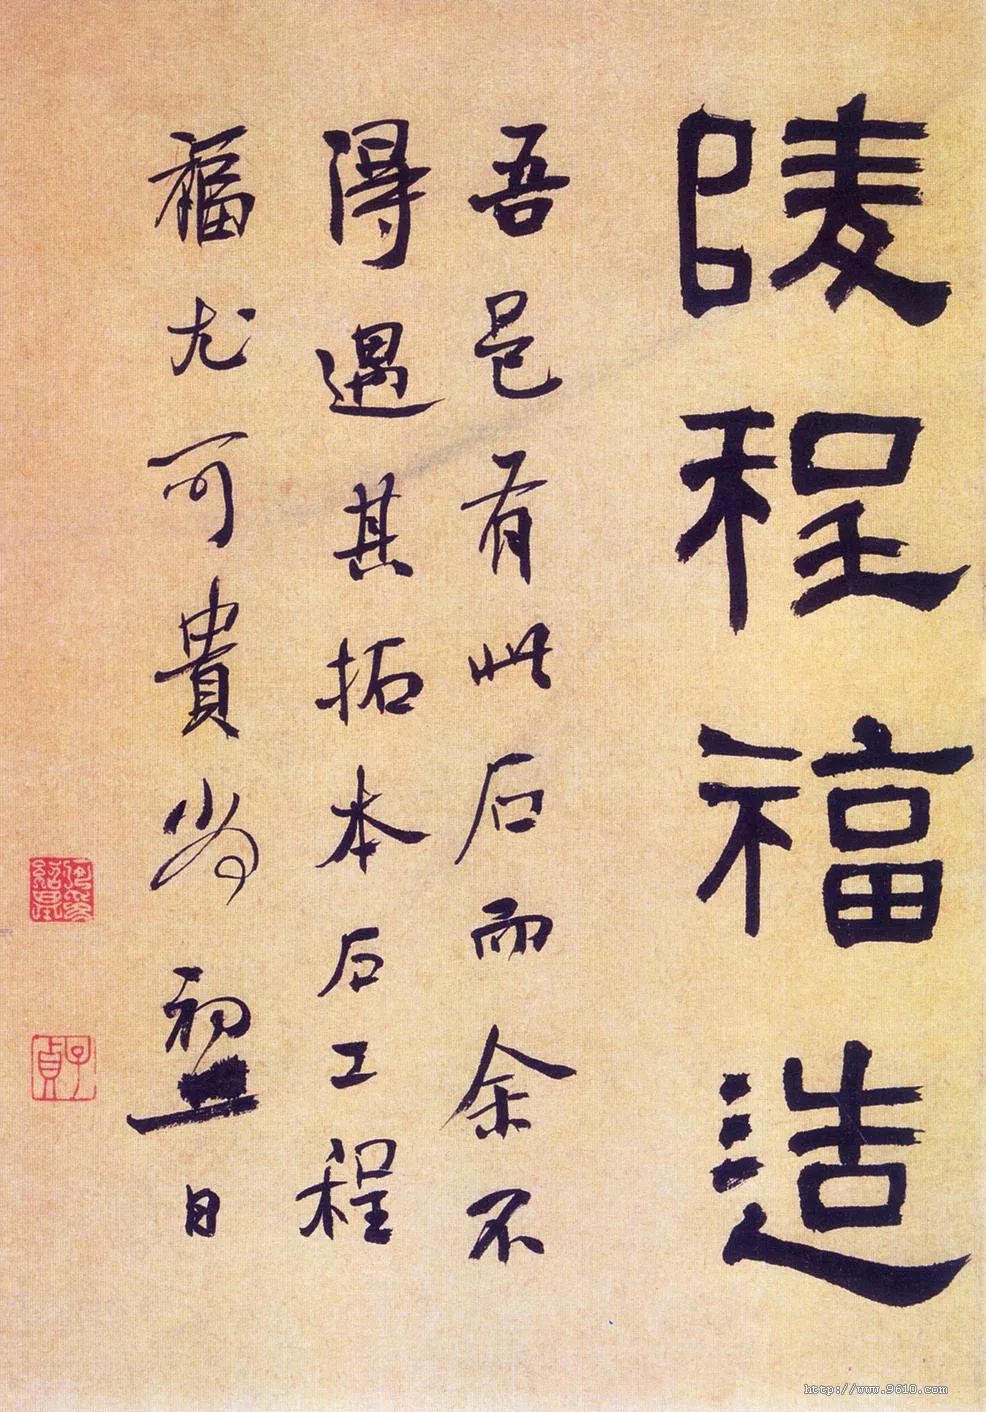 陵程福造
吾邑有此石而余不
得遇其拓本石工程
福尤可貴 日
子貞
http://www.9610.com